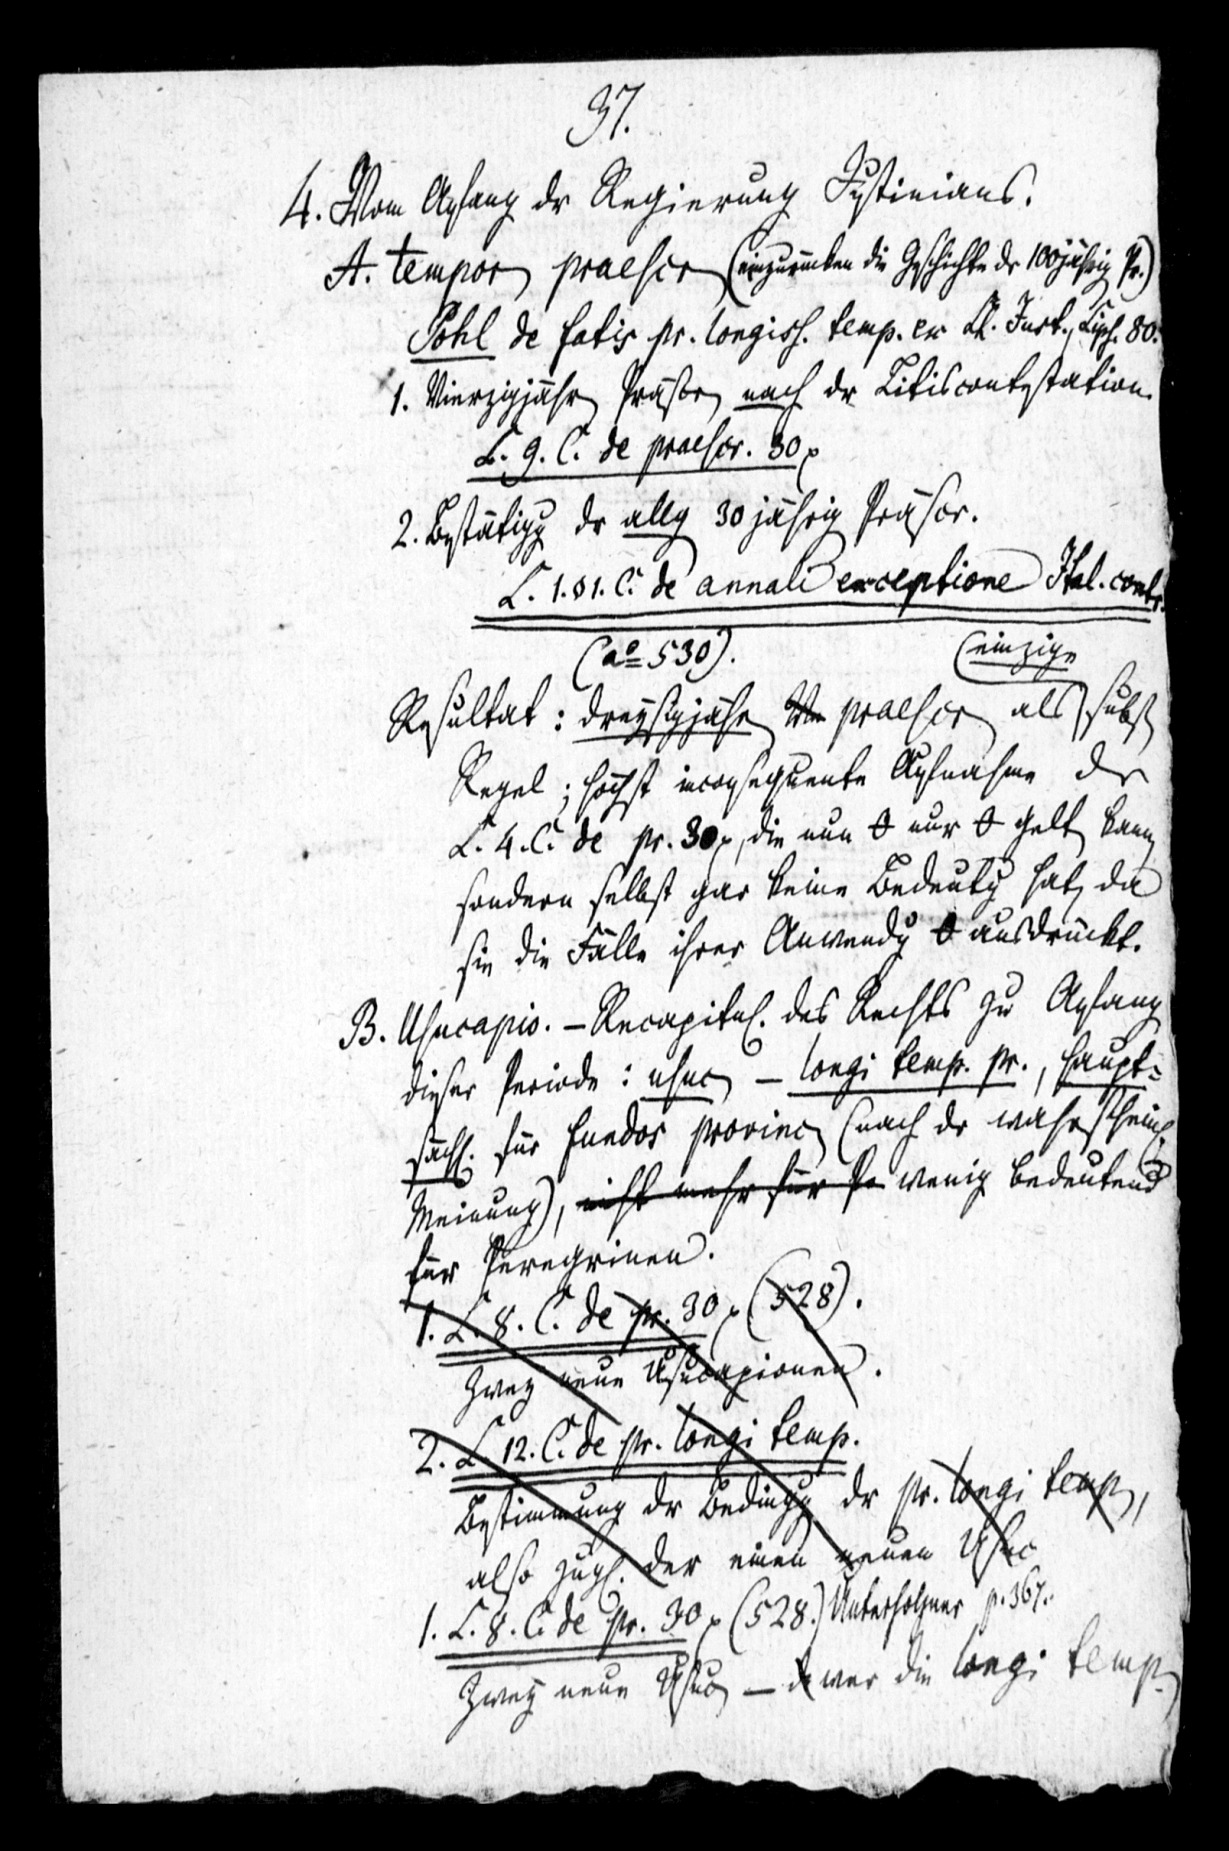 37.
4. Vom Anfang der Regierung Justinians.
A. tempor praescr (einzurücken die Geschichte der 100jährig Pr.)
Pohl de fatis pr. longiss. temp. ex C. Just., Lips. 80.
1. Vierzigjähr Präscr nach der Litiscontestation.
L. 9. C. de praescr. 30
2. Bestätigg der allg 30 jährig Präscr.
L. 1. § 1. C. de annali exceptione Ital. contr.
(aº 530).
(einzige
Resultat : dreyssigjähr praescr als subs
Regel ; höchst inconsequente Aufnahme der
L. 4. C. de pr. 30, die nun nur gelt kann
sondern selbst gar keine Bedeutg hat, da
sie die Fälle ihrer Anwendg ausdrückt.
B. Usucapio. – Recapitul. des Rechts zu Anfang
dieser Periode : usuc – longi temp. pr., haupt-
sächl. für fundos provinc (nach der wahrscheinl.
Meinung), nicht mehr für Pe wenig bedeutend
für Peregrinen.
1. L. 8. C. de pr. 30 (528).
Zwey neue Usucapionen.
2. L. 12. C. de pr. longi temp.
Bestimmung der Bedingg der pr. longi temp,
also zugl. der einen neuen Usuc
1. L. 8. C. de pr. 30 (528.) Unterholzner p. 367.
Zwey neue Usuc – wer die longi temp.